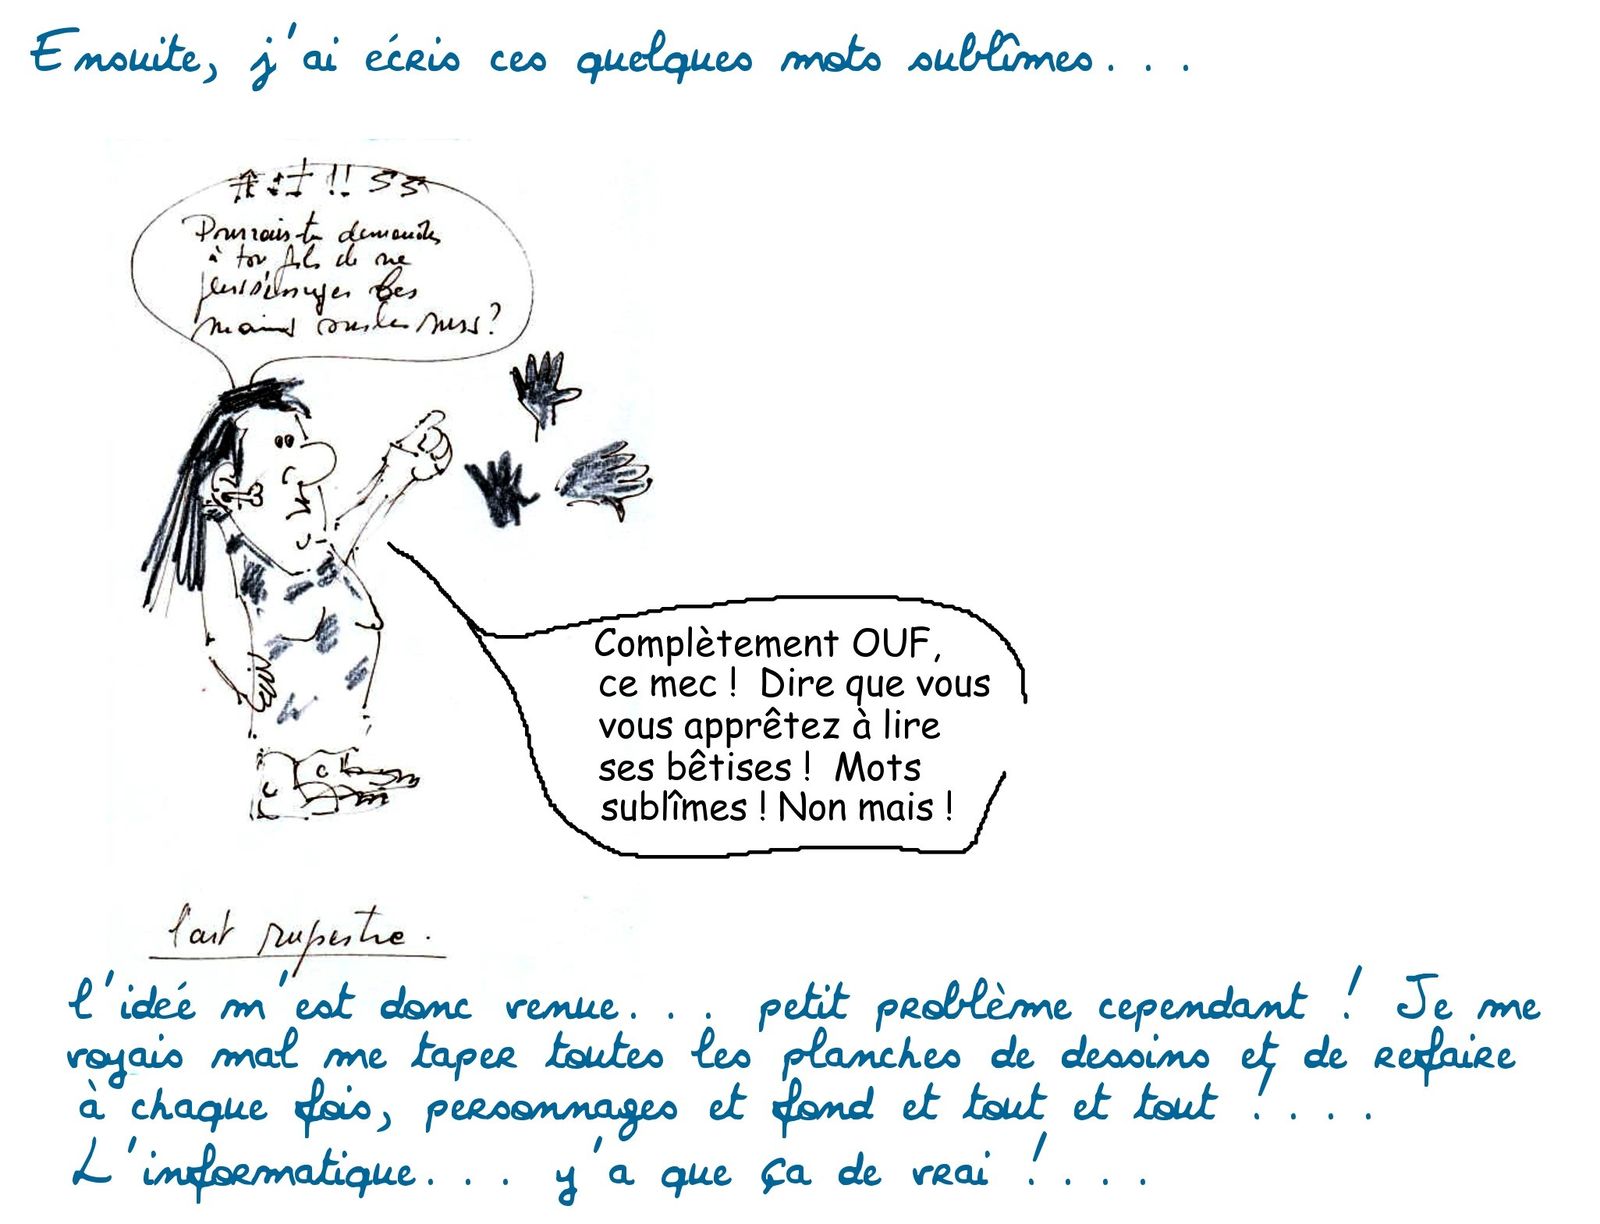 Ensuite, j'ai écris ces quelques mots sublîmes...
!!
Pourrais-tu demander
à ton fils de ne
les
mains sur les murs ?
Complètement OUF,
ce mec ! Dire que vous
vous apprêtez à lire
ses bêtises ! Mots
sublîmes ! Non mais !
l'art rupestre.
l'ideé m'est donc venue... petit problème cependant ! Je me
voyais mal me taper toutes les planches de dessins et de refaire
à chaque fois, personnages et fond et tout et tout !....
L'informatique... y'a que ça de vrai !....